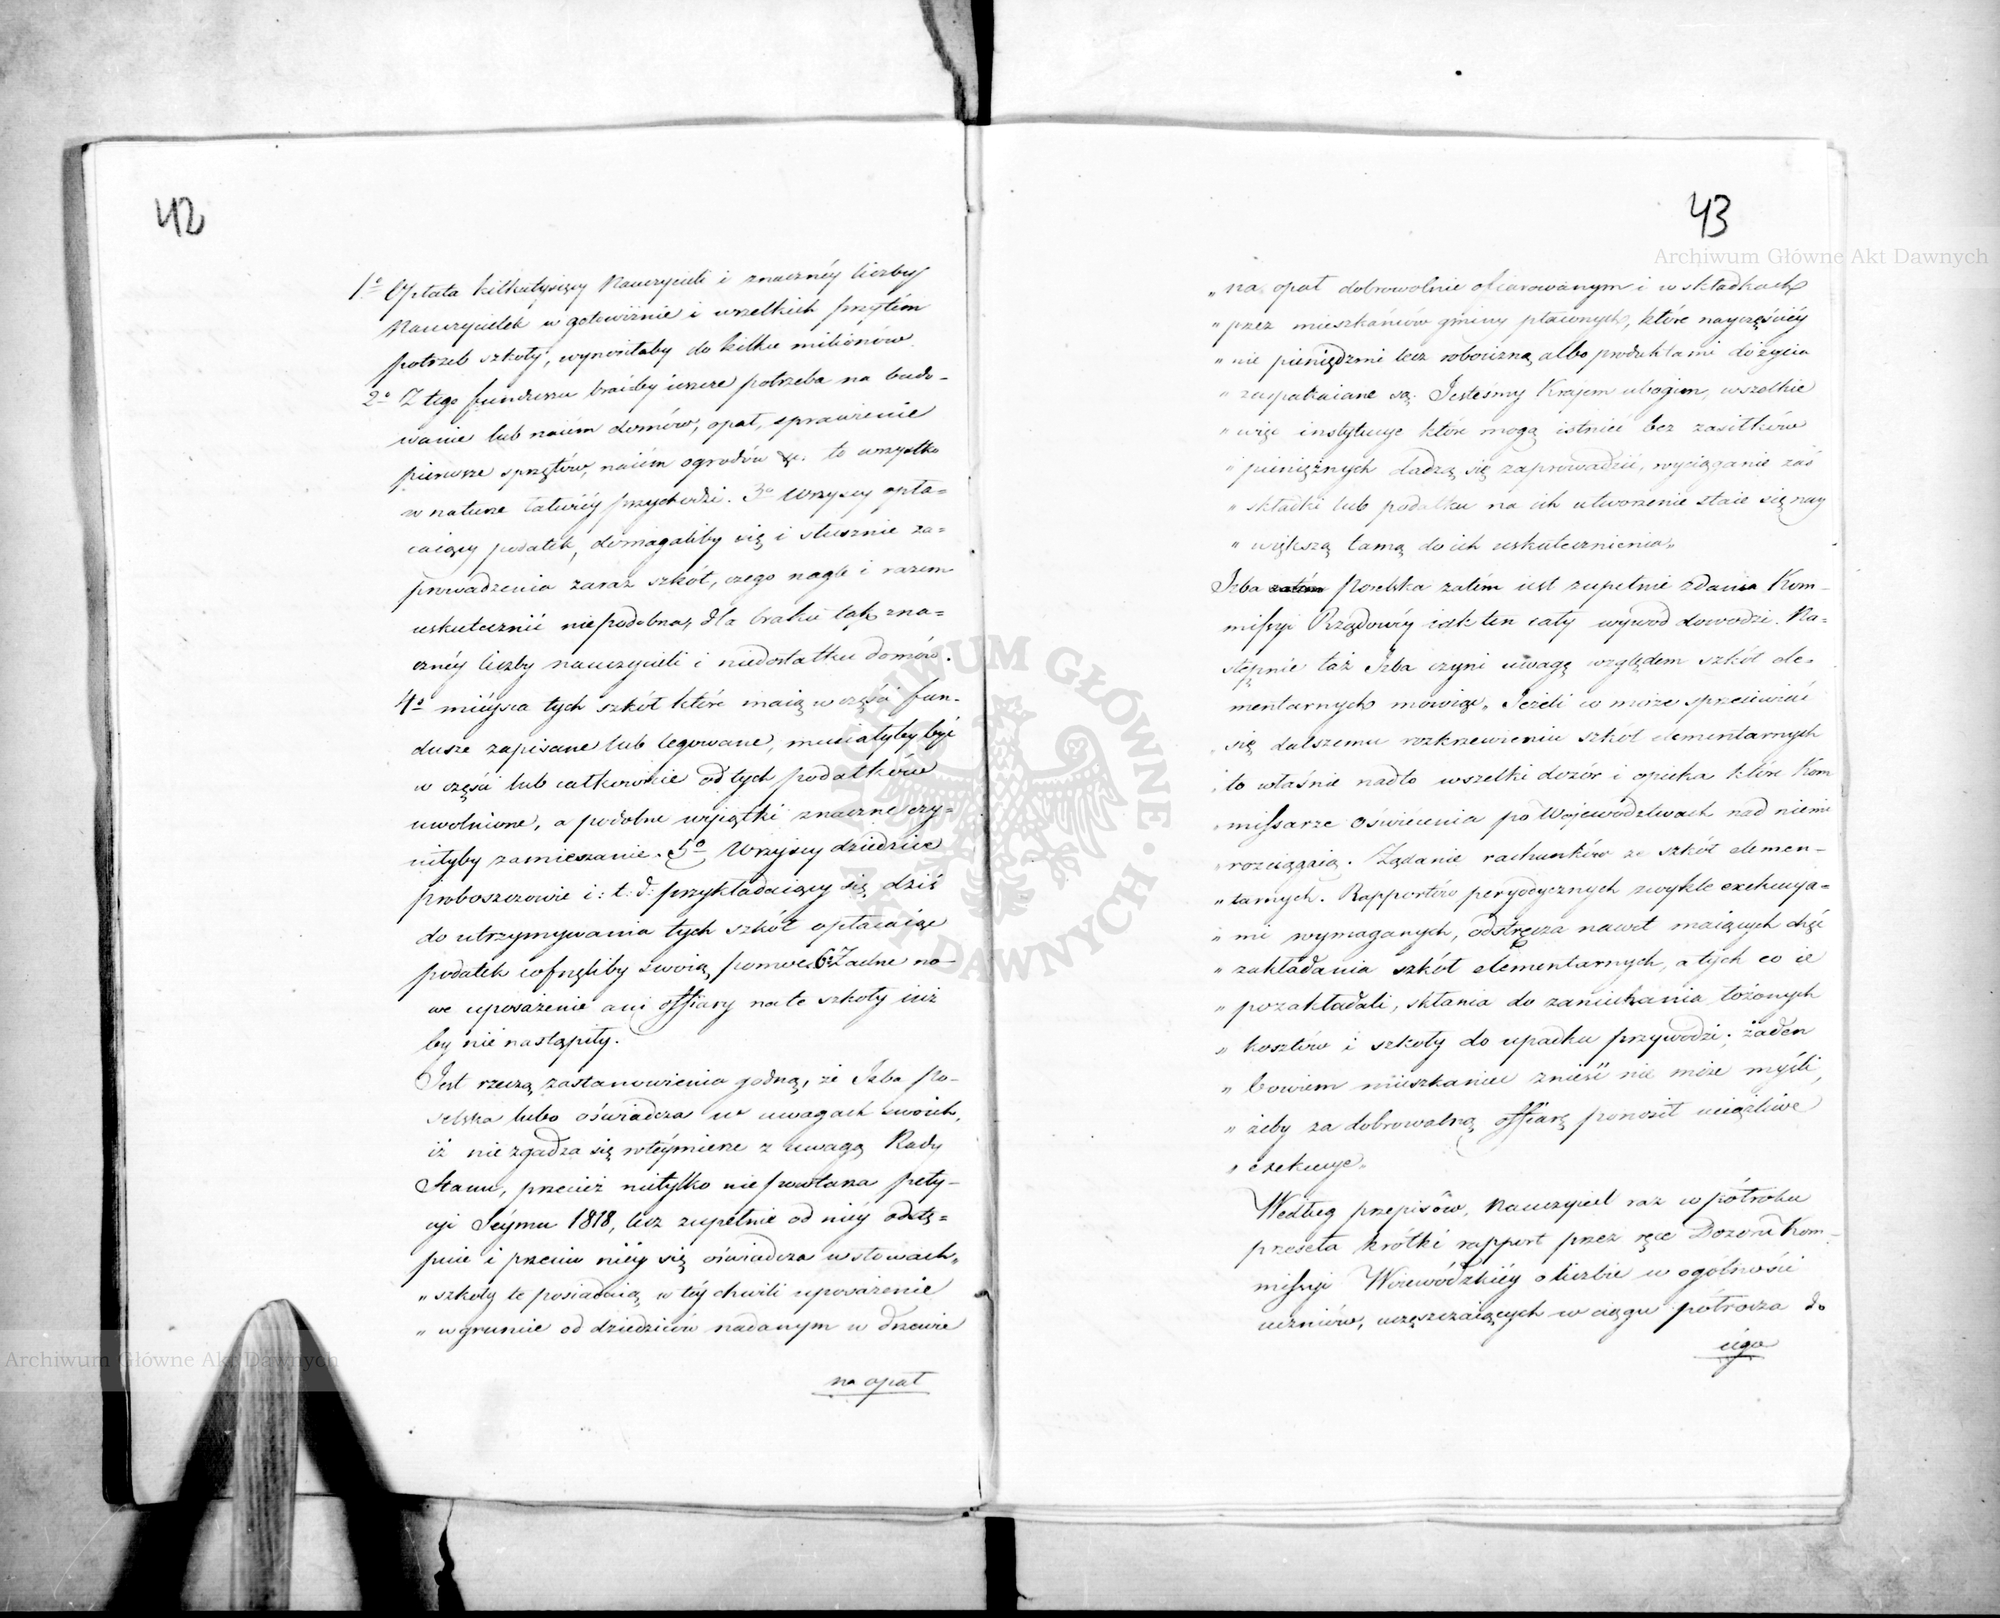 42
1º Opłata kilkutysięcy Nauczycieli i znacznéy liczby
Nauczycielek w gotowiźnie i wszelkich przytém
potrzeb szkoły, wynosiłaby do kilku milionów.
2º Z tego funduszu byłaby ieszcze potrzeba na budo-
wanie lub naiém domów, opał, sprawienie
pierwsze sprzętów, naiém ogrodów &c. to wszystko
w naturze łatwiéy przychodzi. 3º Wszyscy opła=
caiący podatek, domagaliby się i słusznie za=
prowadzenia zaraz szkół, czego nagle i razem
uskutecznić niepodobna, dla braku tak zna=
cznéy liczby nauczycieli i niedostatku domów.
4º mieysca tych szkół które maią w części fun-
dusze zapisane lub legowane, musiałyby być
w części lub całkowicie od tych podatków
uwolnione, a podobne wyiątki znaczne czy=
niłyby zamieszanie. 5º Wszyscy dziedzice
proboszczowie i: t: d: przykładaiący się dziś
do utrzymywania tych szkół opłacaiąc
podatek cofnęliby swoią pomoc 6º Żadne no-
we uposażenie ani offiary na te szkoły iuż
by nie nastąpiły.
Jest rzeczą zastanowienia godną, że Izba Po-
selska lubo oświadcza w uwagach swoich,
iż nie zgadza się w téymierze z uwagą Rady
Stanu, przecież nietylko nie powtarza pety-
cyi Séymu 1818, lecz zupełnie od niéy odstę=
puie i przeciw niéy się oświadcza w słowach„
„szkoły te posiadaią w téy chwili uposażenie
„w gruncie od dziedziców nadanym w drzewie
na opał
43
„na opał dobrowolnie ofiarowanym i w składkach
„przez mieszkańców gminy płaconych, które nayczęściéy
„nie pieniędzmi lecz robocizną albo produktami do życia
„zaspakaiane są. Jesteśmy Kraiem ubogim, wszelkie
„więc instytucye które mogą istnieć bez zasiłków
„pieniężnych dadzą się zaprowadzić, wyciąganie zaś
„składki lub podatku na ich utworzenie staie się nay
„większą tamą do ich uskutecznienia„
Izba Poselska zatém iest zupełnie zdania Kom-
missyi Rządowéy iak ten cały wywód dowodzi. Na-
stępnie taż Izba czyni uwagę względem szkół ele-
mentarnych mówiąc„ Jeżeli co może sprzeciwiać
„się dalszemu rozkrzewieniu szkół elementarnych
„to właśnie nadto wszelki dozór i opieka które Kom
„missarze Oświecenia po Województwach nad niemi
„rozciągaią. Żądanie rachunków ze szkół elemen-
„tarnych. Rapportów peryodycznych zwykle exekucya=
„mi wymaganych, odstręcza nawet maiących chęć
„zakładania szkół elementarnych, a tych co ie
„pozakładali, skłania do zaniechania łożonych
„kosztów i szkoły do upadku przywodzi; żaden
„bowiem mieszkaniec znieść nie może myśli,
„żeby za dobrowolną offiarę ponosił uciążliwe
„exekucye„
Według przepisów, Nauczyciel raz w półroku
przeseła krótki rapport przez ręce Dozoru Kom-
missyi Woiewódzkiéy o liczbie w ogólności
uczniów, uczęszczaiących w ciągu półrocza do
iego
Archiwum Główne Akt Dawnych
Archiwum Główne Akt Dawnych
ARCHIWUM GŁÓWNE AKT DAWNYCH